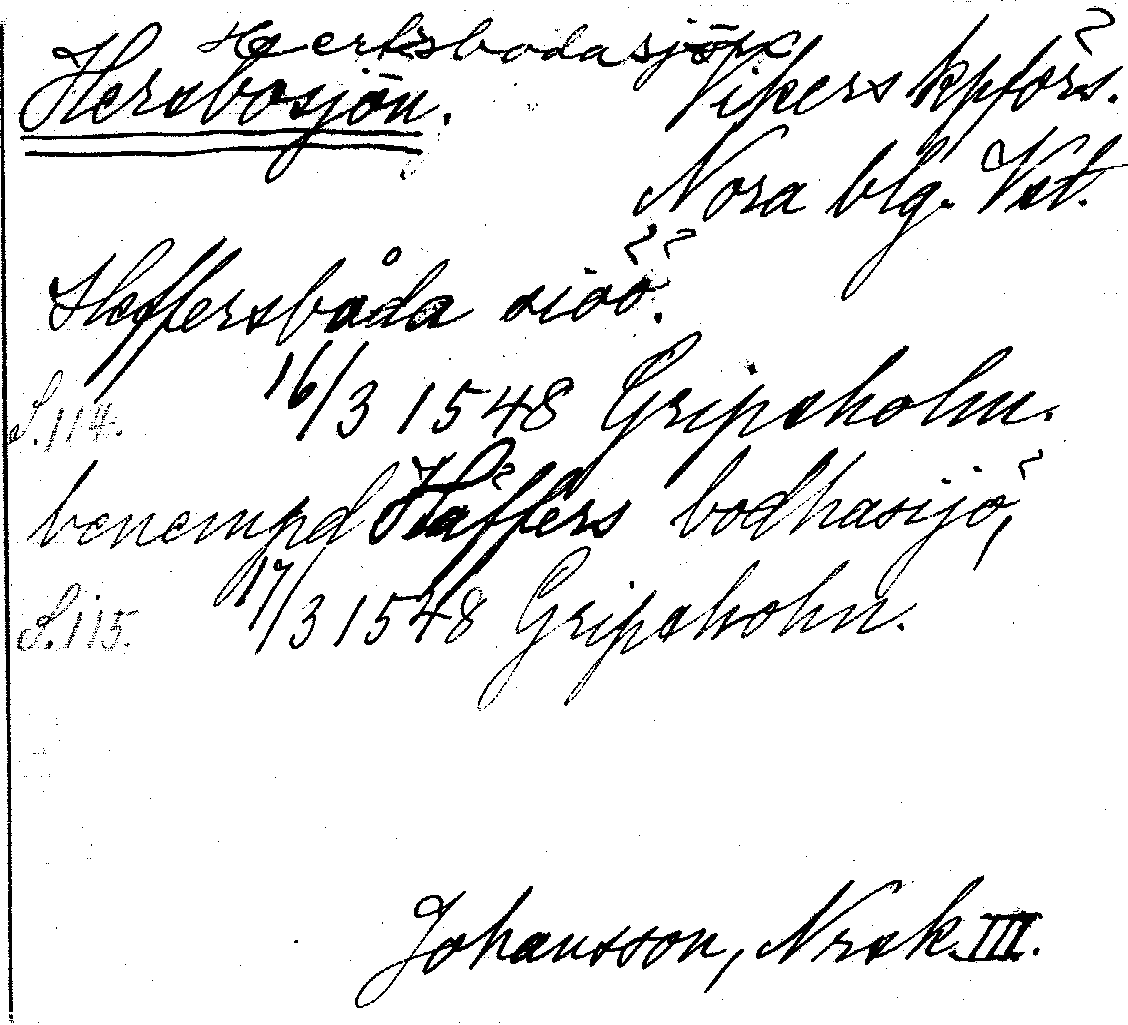 Haerksbodasjön
Hersbosjön. Vikers kpförs.
Nora blg. Vst.
Heffersbåda sioö.
S.114. 16/3 1548 Gripsholm.
benempd Häffers bodhasijö,
S.115. 17/3 1548 Gripsholm.
Johansson, Nrsk III.